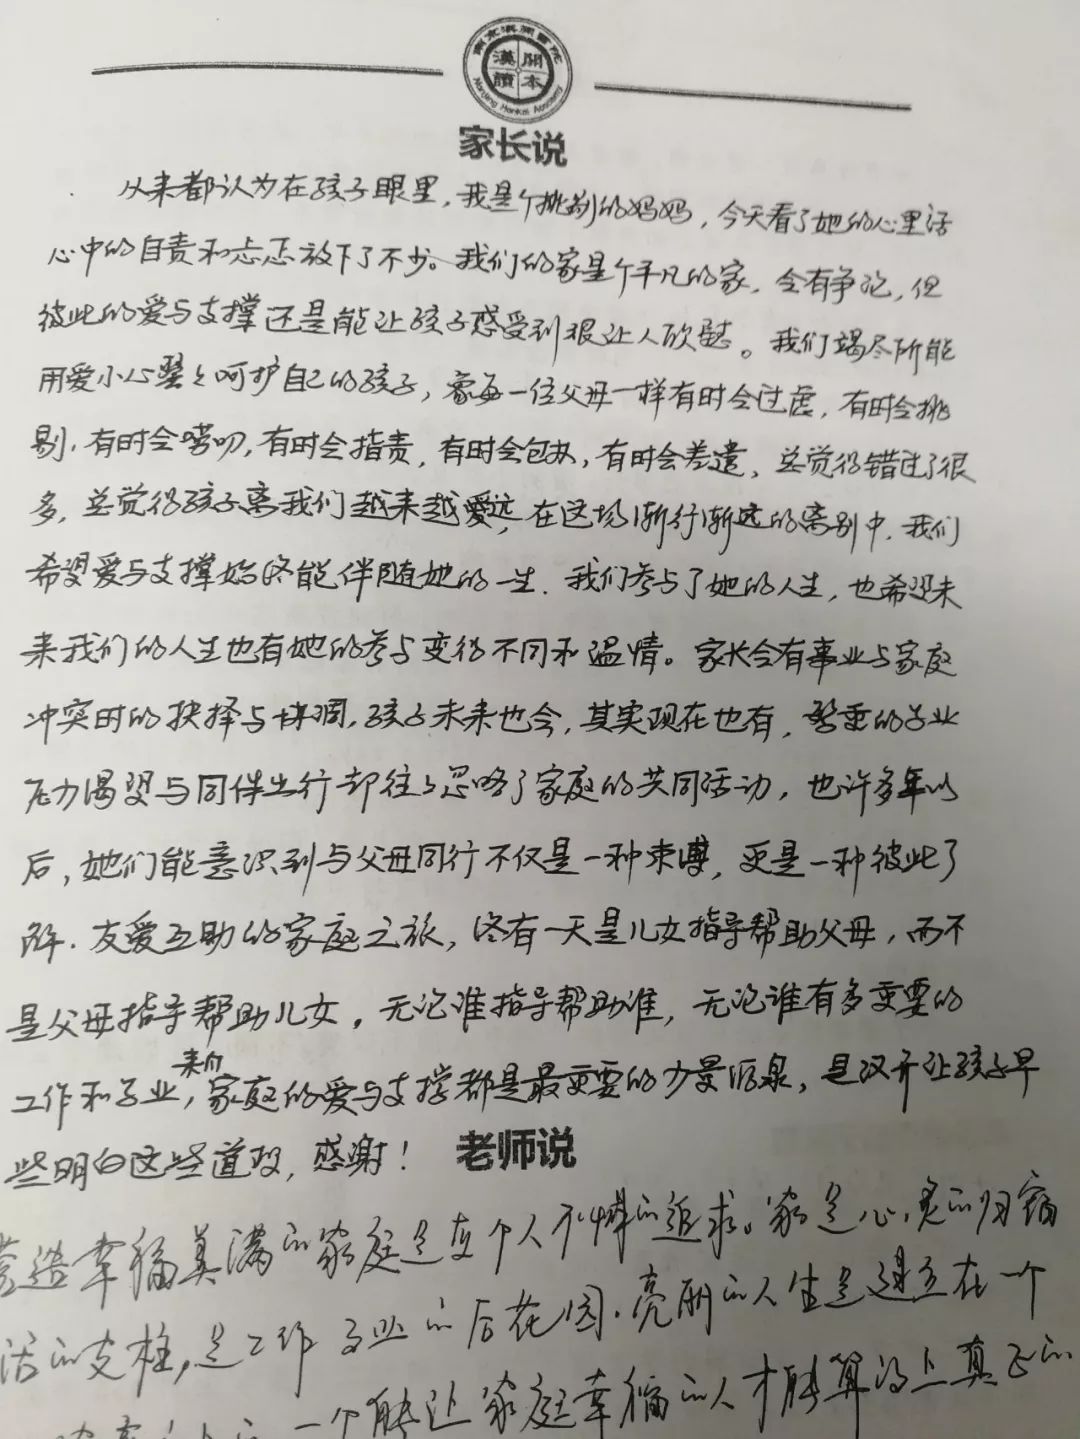 南京漢開書院
漢開
讀本
Nanjing Hankai Academy
家长说
从来都认为在孩子眼里，我是个挑剔的妈妈，今天看了她的心里话
心中的自责和忐忑放下了不少。我们的家是个平凡的家，会有争论，但
彼此的爱与支撑还是能让孩子感受到很让人欣慰。我们竭尽所能
用爱小心翼々呵护自己的孩子，象每一位父母一样有时会过虑，有时会挑
剔，有时会唠叨，有时会指责，有时会包办，有时会差遣，总觉得错过了很
多，总觉得孩子离我们越来越遥远，在这场渐行渐远的离别中，我们
希望爱与支撑始终能伴随她的一生．我们参与了她的人生，也希望未
来我们的人生也有她的参与变得不同和温情。家长会有事业与家庭
冲突时的抉择与协调，孩子未来也会，其实现在也有，繁重的学业
压力渴望与同伴出行却往々忽略了家庭的共同活动，也许多年以
后，她们能意识到与父母同行不仅是一种束缚，更是一种彼此了
解．友爱互助的家庭之旅，终有一天是儿女指导帮助父母，而不
是父母指导帮助儿女，无论谁指导帮助谁，无论谁有多重要的
工作和学业，来自家庭的爱与支撑都是最重要的力量源泉，是汉开让孩子早
些明白这些道理，感谢！
老师说
营造幸福美满的家庭是每个人不懈的追求。家是心灵的归宿
活的支柱，是工作学业的后花园．亮丽的人生是建立在一个
一个能让家庭幸福的人才能算得上真正的